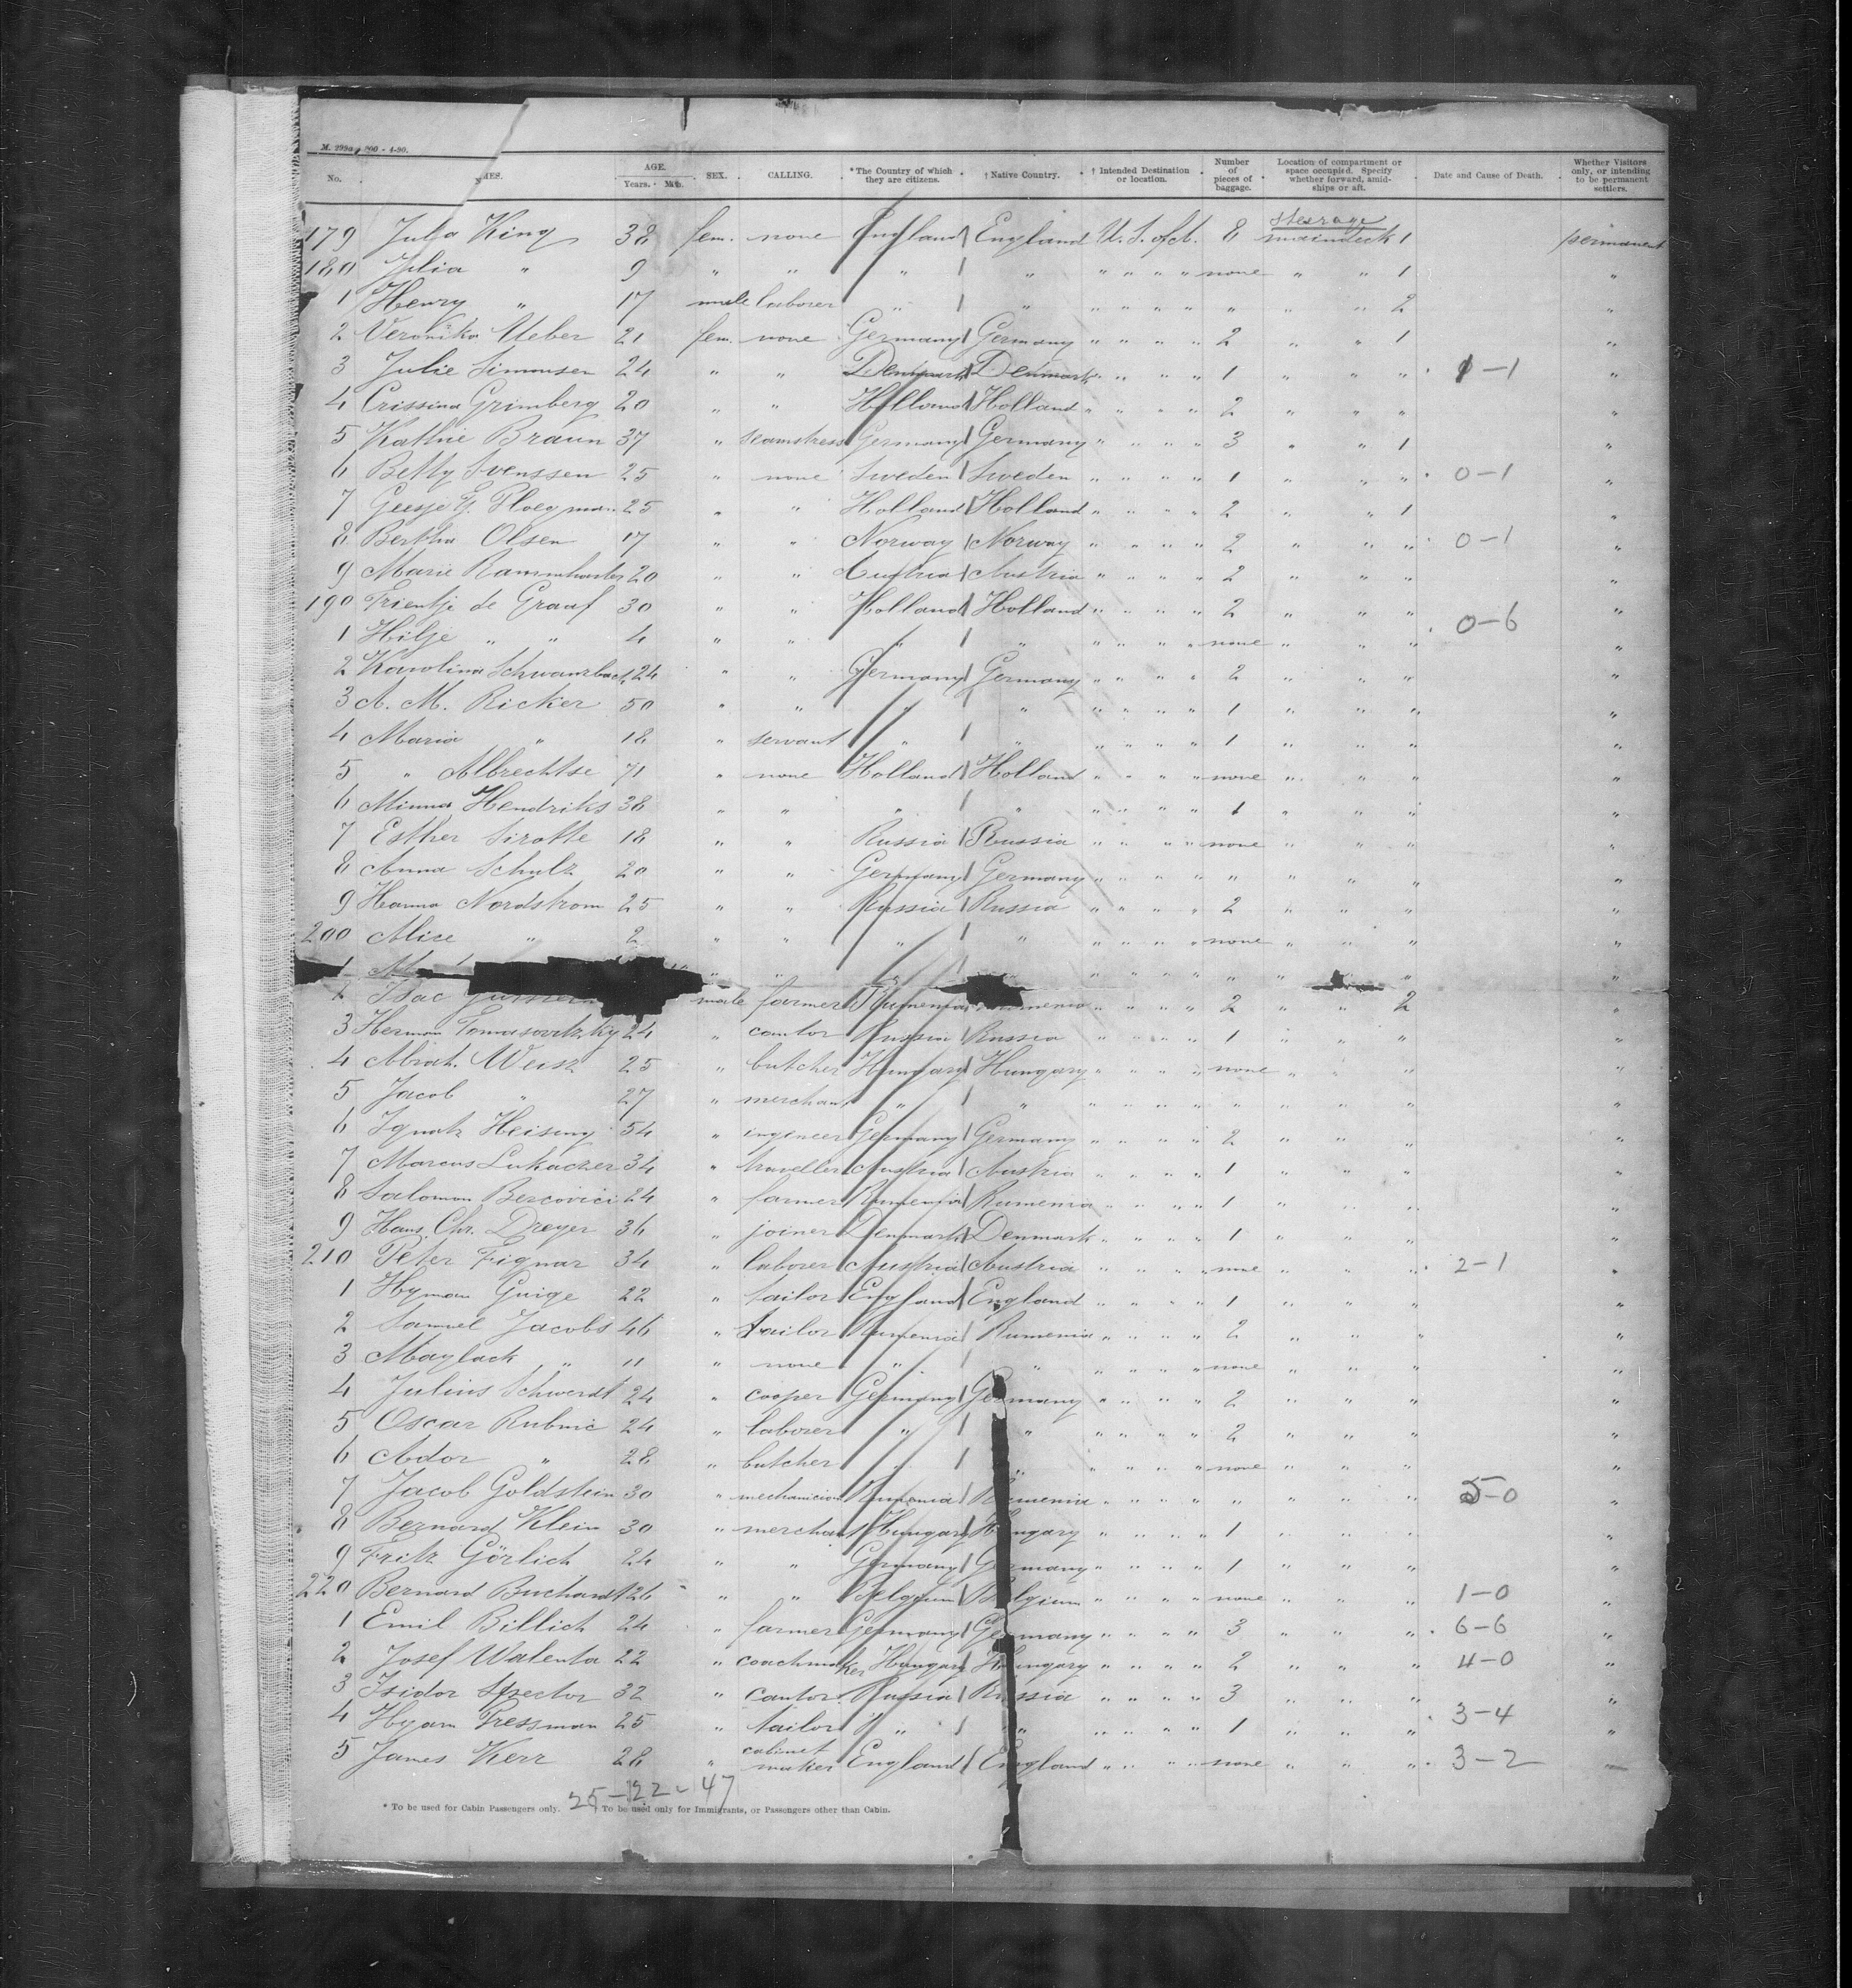 M. 299a - 200 - 4-90.
No. NAMES. AGE. Years. Mth. SEX. CALLING. *The Country of which they are citizens. †Native Country. †Intended Destination or location. Number of pieces of baggage. Location of compartment or space occupied. Specify whether forward, amidships or aft. Date and Cause of Death. Whether Visitors only, or intending to be permanent settlers.
steerage
179 Julia King 38 fem. none England England U. S. of A. 8 maindeck 1 permanent
180 Julia " 9 " " " " " " " " none " " 1 "
1 Henry " 17 male laborer " " " " " " " " " 2 "
2 Veronika Ueber 21 fem. none Germany Germany " " " " 2 " " 1 "
3 Julie Simonsen 24 " " Denmark Denmark " " " " 1 " " " 1-1 "
4 Crissina Grimberg 20 " " Holland Holland " " " " 2 " " " "
5 Kathie Braun 37 " seamstress Germany Germany " " " " 3 " " 1 "
6 Betty Svenssen 25 " none Sweden Sweden " " " " 1 " " " 0-1 "
7 Geesje G. Ploegman 25 " " Holland Holland " " " " 2 " " 1 "
8 Bertha Olsen 17 " " Norway Norway " " " " 2 " " " 0-1 "
9 Marie Rammharter 20 " " Austria Austria " " " " 2 " " " "
190 Trientje de Graaf 30 " " Holland Holland " " " " 2 " " " "
1 Hilje " " 4 " " " " " " " " none " " " 0-6 "
2 Karolina Schwarzbach 24 " " Germany Germany " " " " 2 " " " "
3 A. M. Ricker 50 " " " " " " " " 1 " " " "
4 Maria " 18 " servant " " " " " " 1 " " " "
5 " Albrechtse 71 " none Holland Holland " " " " none " " " "
6 Minna Hendriks 38 " " " " " " " " 1 " " " "
7 Esther Sirotte 18 " " Russia Russia " " " " none " " " "
8 Anna Schulz 20 " " Germany Germany " " " " " " " " "
9 Hanna Nordstrom 25 " " Russia Russia " " " " 2 " " " "
200 Alice " 2 " " " " " " " " none " " " "
1 " " " " " " " " " " " "
2 Isac male farmer Rumenia Rumenia " " " " 2 " " 2 "
3 Herman Tomasovitzky 24 " cantor Russia Russia " " " " 1 " " " "
4 Abrah. Weisz 25 " butcher Hungary Hungary " " " " none " " " "
5 Jacob " 27 " merchant " " " " " " " " " " "
6 Ignatz Heising 54 " ingineer Germany Germany " " " " 2 " " " "
7 Marcus Lukaczer 34 " traveller Austria Austria " " " " 1 " " " "
8 Salomon Bercovici 24 " farmer Rumenia Rumenia " " " " 1 " " " "
9 Hans Chr. Dreyer 36 " joiner Denmark Denmark " " " " 1 " " " "
210 Peter Fignar 34 " laborer Austria Austria " " " " none " " " 2-1 "
1 Hyman Guige 22 " tailor England England " " " " 1 " " " "
2 Samuel Jacobs 46 " tailor Rumenia Rumenia " " " " 2 " " " "
3 Maylack " 11 " none " " " " " " none " " " "
4 Julius Schwerdt 24 " cooper Germany Germany " " " " 2 " " " "
5 Oscar Rubnic 24 " laborer " " " " " " 2 " " " "
6 Ador " 28 " butcher " " " " " " none " " " "
7 Jacob Goldstein 30 " mechanician Rumenia Rumenia " " " " " " " " 5-0 "
8 Bernard Klein 30 " merchant Hungary Hungary " " " " 1 " " " "
9 Fritz Görlich 24 " " Germany Germany " " " " 1 " " " "
220 Bernard Buchardt 26 " " Belgium Belgium " " " " none " " " 1-0 "
1 Emil Billich 24 " farmer Germany Germany " " " " 3 " " " 6-6 "
2 Josef Walenta 22 " coachmaker Hungary Hungary " " " " 2 " " " 4-0 "
3 Isidor Spector 32 " cantor Russia Russia " " " " 3 " " " "
4 Hyam Pressman 25 " tailor " " " " " " 1 " " " 3-4 "
5 James Kerr 28 " cabinet maker England England " " " " none " " " 3-2 "
25-122-47
* To be used for Cabin Passengers only. † To be used only for Immigrants, or Passengers other than Cabin.